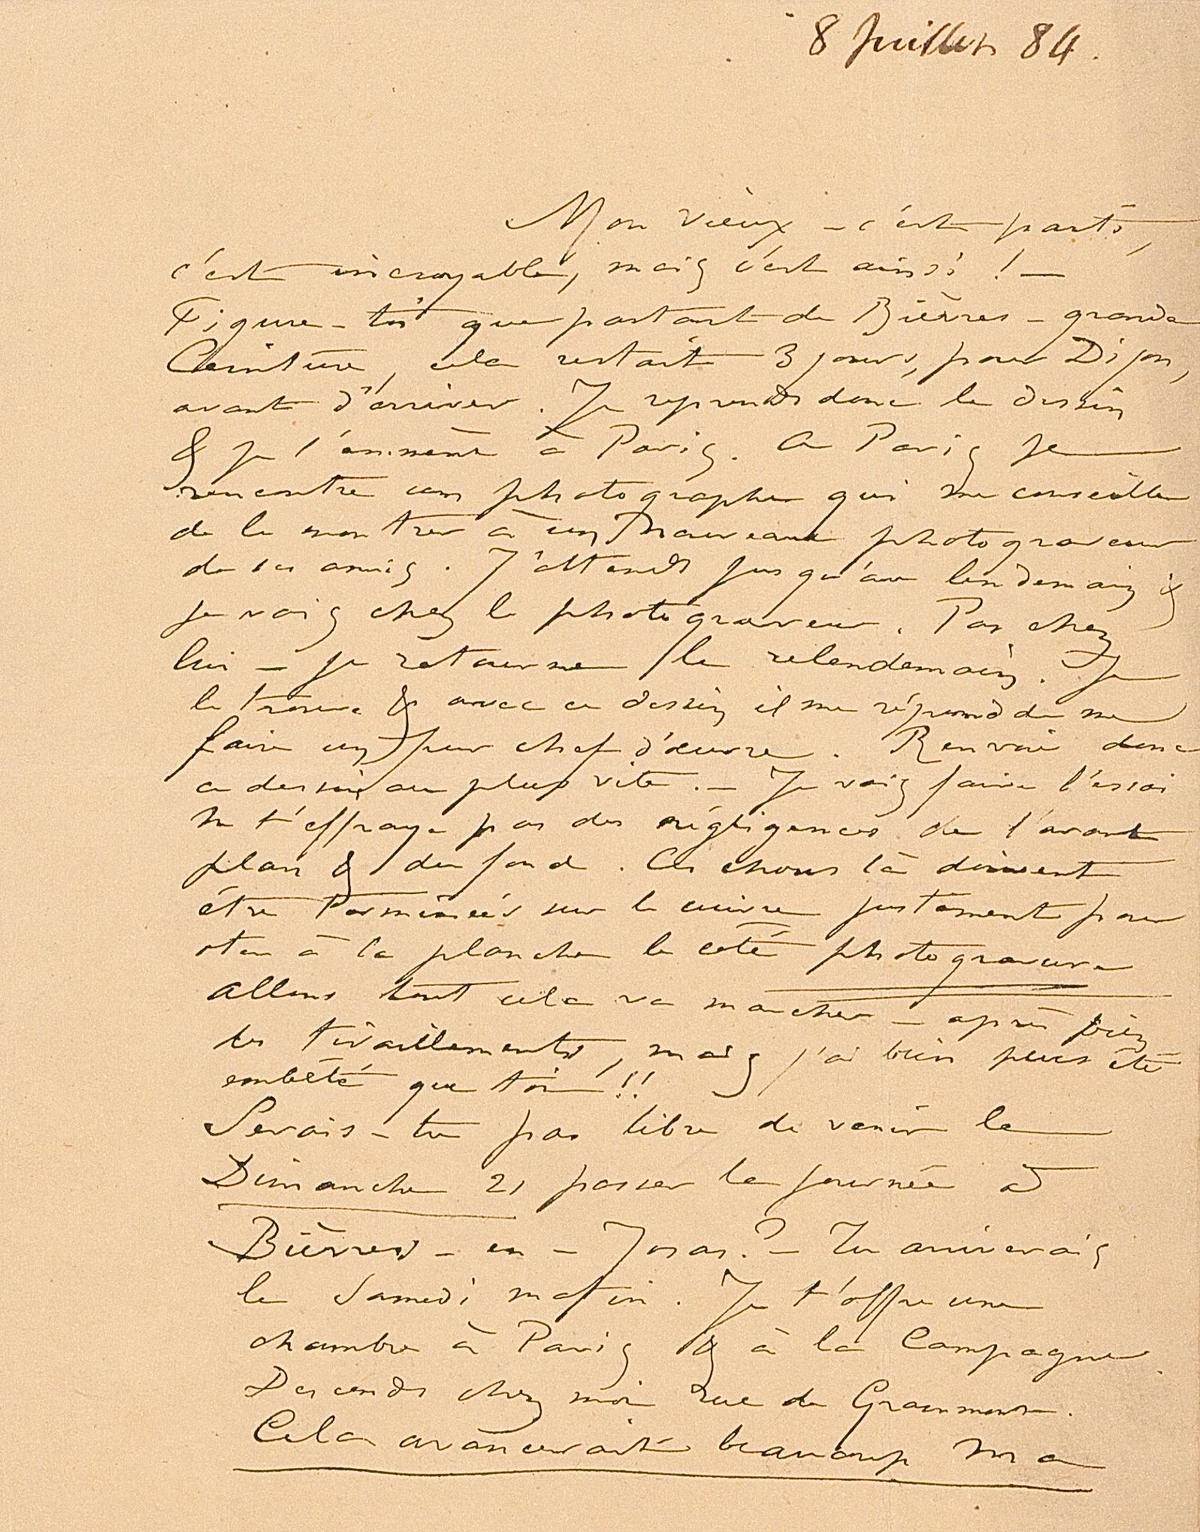 8 Juillet 84.
Mon vieux – c'est parti,
c'est incroyable, mais c'est ainsi ! –
Figure-toi que partant de Bièvres – grande
Ceinture, cela restait 3 jours, pour Dijon,
avant d'arriver. Je reprends donc le dessin
& je l'emmène à Paris. A Paris je
rencontre un photographe qui me conseille
de le montrer à un nouveau photograveur
de ses amis. J'attends jusqu'au lendemain &
je vais chez le photograveur. Pas chez
lui – je retourne le relendemain. Je
le trouve & avec ce dessin il me répond de me
faire un pur chef d'œuvre. Renvoie donc
ce dessin au plus vite. – Je vais faire l'essai
Ne t'effraye pas des négligences de l'avant
plan & du fond. Ces choses là doivent
être terminées sur le cuivre justement pour
oter à la planche le coté photogravure
Allons tout cela va marcher – après bien
des tiraillements, mais j'ai bien plus été
embêté que toi !!
Serais-tu pas libre de venir le
Dimanche 21 passer la journée à
Bièvres – en – Josas ? – Tu arriverais
le Samedi matin. Je t'offre une
chambre à Paris & à la Campagne
Descends chez moi rue de Grammont.
Cela avancerait beaucoup ma